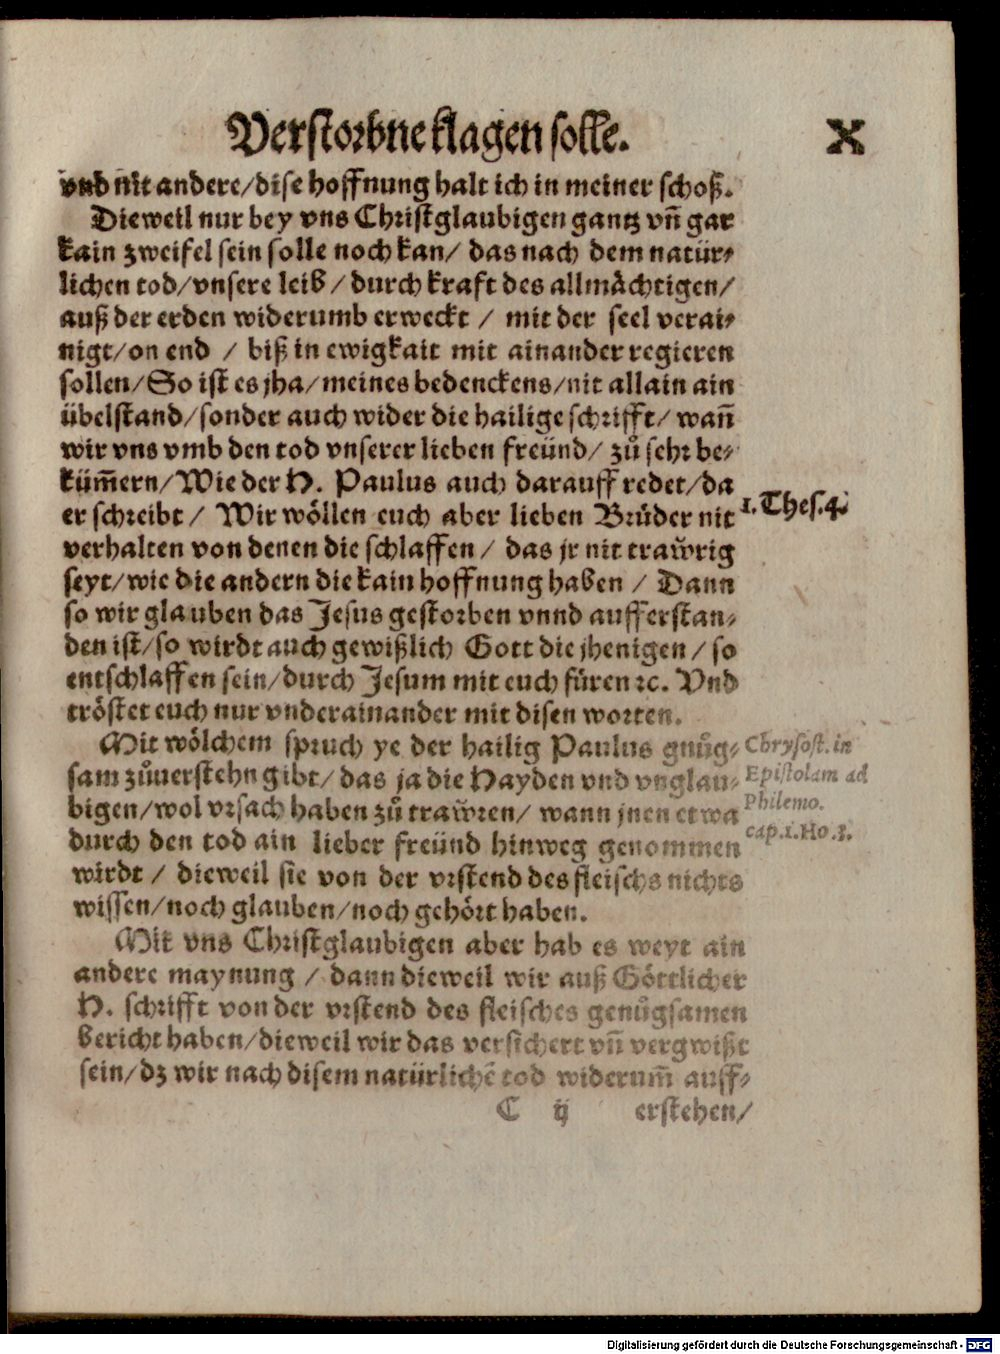 Verstorbne klagen solle. X
vnd nit andere/dise hoffnung halt ich in meiner schoß.
Dieweil nur bey vns Christglaubigen gantz vñ gar
kain zweifel sein solle noch kan/ das nach dem natür-
lichen tod/vnsere leib / durch kraft des allmåchtigen/
auß der erden widerumb erweckt / mit der seel verai-
nigt/on end / biß in ewigkait mit ainander regieren
sollen/So ist es jha/meines bedenckens/nit allain ain
übelstand/sonder auch wider die hailige schrifft/ wañ
wir vns vmb den tod vnserer lieben freünd/ zů sehr be-
küm̃ern/Wie der H. Paulus auch darauff redet/da
er schreibt / Wir wöllen euch aber lieben Brüder nit
1. Thes. 4.
verhalten von denen die schlaffen / das jr nit trawͤrig
seyt/wie die andern die kain hoffnung haben / Dann
so wir glauben das Jesus gestorben vnnd aufferstan-
den ist/so wirdt auch gewißlich Gott die jhenigen/ so
entschlaffen sein/durch Jesum mit euch füren ꝛc. Vnd
tröstet euch nur vnderainander mit disen worten.
Mit wölchem spruch ye der hailig Paulus gnůg-
sam zůuerstehn gibt/das ja die Hayden vnd vnglau-
bigen/wol vrsach haben zů trawͤren/ wann jnen etwa
durch den tod ain lieber freünd hinweg genommen
wirdt / dieweil sie von der vrstend des fleischs nichts
wissen/noch glauben/noch gehört haben.
Chrysost. in
Epistolam ad
Philemo.
cap. 1. Ho. 1.
Mit vns Christglaubigen aber hab es weyt ain
andere maynung / dann dieweil wir auß Göttlicher
H. schrifft von der vrstend des fleisches genůgsamen
bericht haben/dieweil wir das versichert vñ vergwißt
sein/dz wir nach disem natürlichẽ tod widerum̃ auff-
C ij erstehen/
Digitalisierung gefördert durch die Deutsche Forschungsgemeinschaft - DFG